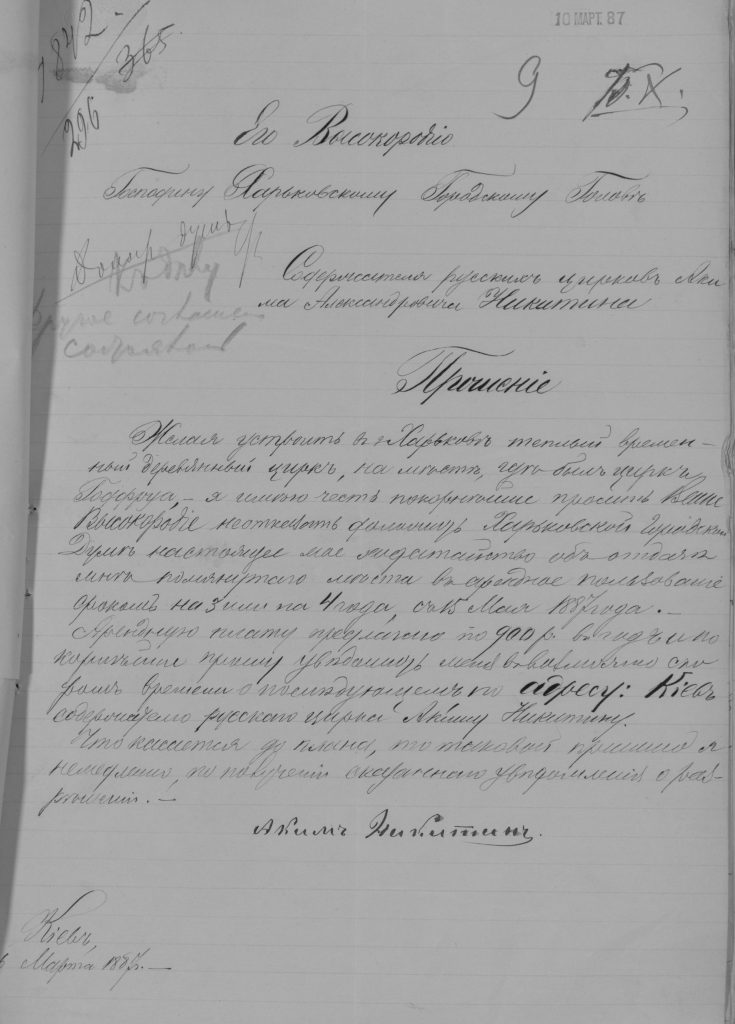 10 МАРТ. 87
1842
365
296
9
Его Высокородію
Господину Харьковскому Городскому Головѣ
Содержателя русскихъ цирковъ Аки
ма Александровича Никитина
Прошеніе
Желая устроить въ г. Харьковѣ теплый времен-
ный деревянный циркъ, на мѣстѣ, гдѣ былъ циркъ
Годфруа, – я имѣю честь покорнѣйше просить Ваше
Высокородіе неотказать доложить Харьковской Городской
Думѣ настоящее мое ходатайство объ отдачѣ
мнѣ помянутаго мѣста въ арендное пользованіе
срокомъ на 3 или на 4 года, съ 15 Мая 1887 года. –
Арендную плату предлагаю по 900 р. въ годъ и по
корнѣйше прошу увѣдомить меня въ возможно ско
ромъ времени о послѣдующемъ по адресу: Кіевъ
содержателю русскаго цирка Акиму Никитину.
Что касается до плана, то таковой пришлю я
немедленно, по полученіи сказаннаго увѣдомленія о раз-
рѣшеніи. –
Акимъ Никитинъ.
Кіевъ,
Марта 1887. –